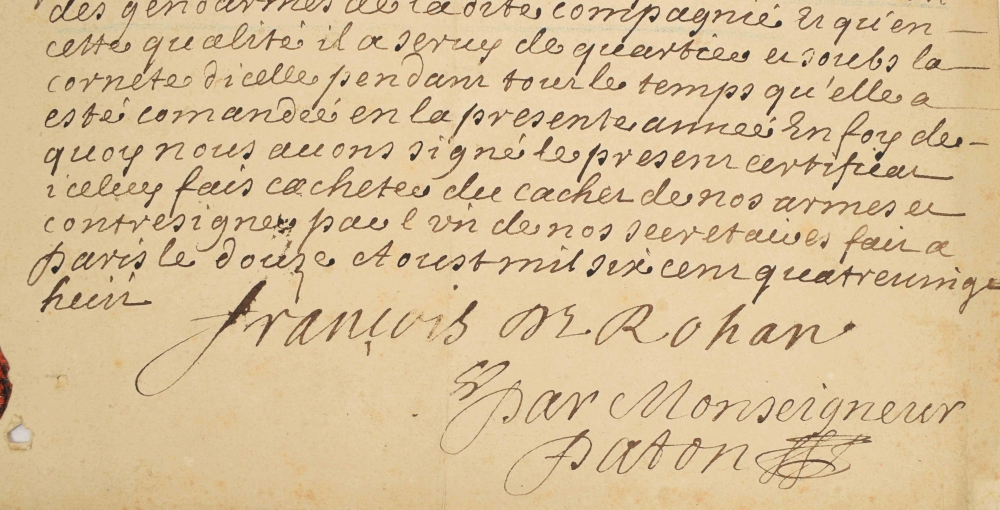 des gendarmes de ladite compagnie Et qu'en
cette qualité il a seruy de quartier et soubs la
cornete dicelle pendant tout le temps qu'elle a
esté comandée en la presente année En foy de
quoy nous auons signé le present certificat
iceluy fais cacheter du cachet de nos armes et
contresigner par l'vn de nos secretaires fait a
Paris le douze Aoust mil six cent quatreuingt
huit
François de Rohan
Par Monseigneur
Paton